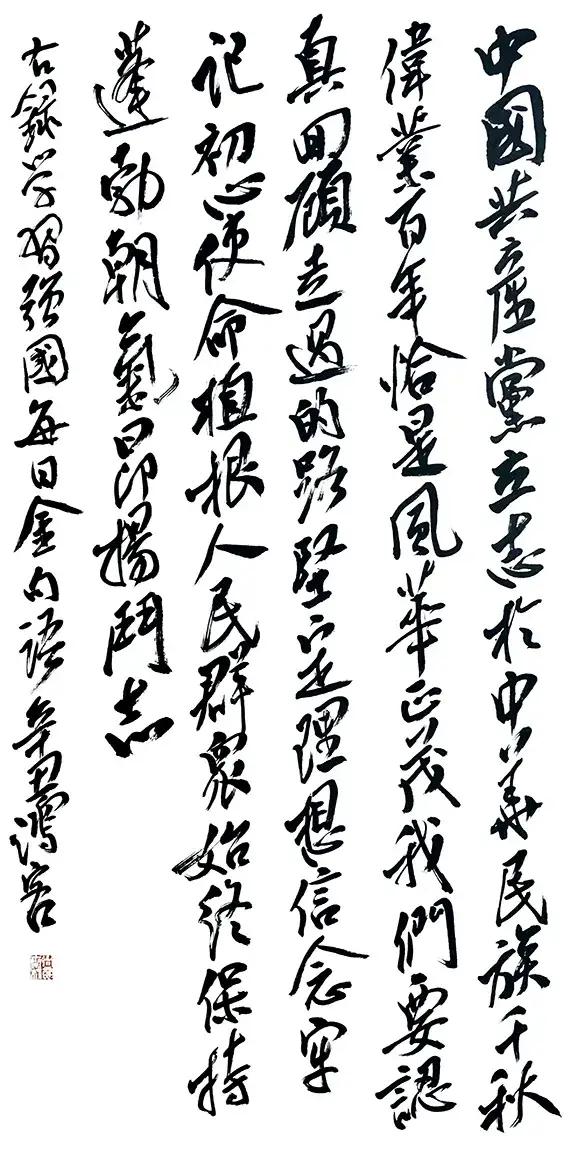 中國共產黨立志於中華民族千秋
偉業百年恰是風華正茂我們要認
真回顧走過的路堅定理想信念牢
記初心使命植根人民群衆始終保持
蓬勃朝氣昂揚鬥志
右錄学習強國每日金句語辛丑鴻客